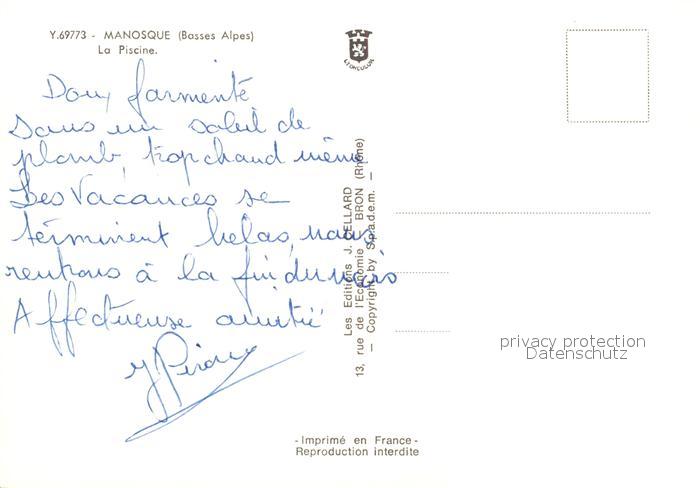 Y.69773 - MANOSQUE (Basses Alpes)
La Piscine.
LYONCOLOR
Doux farmenté
Sous un soleil de
plomb, trop chaud même
Les Vacances se
terminent helas, nous
rentrons à la fin du mois
Affectueuse amitié
Les Editions J. CELLARD
13, rue de l'Economie BRON (Rhône)
— Copyright by S.p.a.d.e.m. —
privacy protection
Datenschutz
- Imprimé en France -
Reproduction interdite